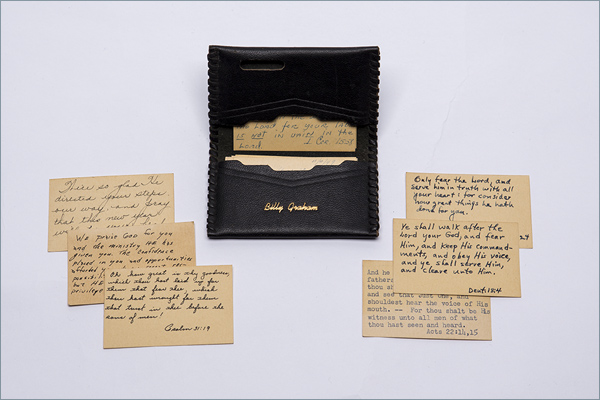 is not in vain in the
Lord. I Cor 15:58
Billy Graham
directed your steps
our way and pray
that this new year
We praise God for you
and the ministry He has
given you. The confidence
placed in you and opportunities
Oh how great is thy goodness,
which thou hast laid up for
them that fear thee, which
thou hast wrought for them
that trust in thee before the
sons of men!
Psalm 31:19
Only fear the Lord, and
serve him in truth with all
your heart: for consider
how great things he hath
done for you.
24
Ye shall walk after the
Lord your God, and fear
Him, and keep His command-
ments, and obey His voice,
and ye shall serve Him,
and cleave unto Him.
Deut. 13:4
And he
father
thou sh
and see that Just One, and
shouldest hear the voice of His
mouth. -- For thou shalt be His
witness unto all men of what
thou hast seen and heard.
Acts 22:14,15